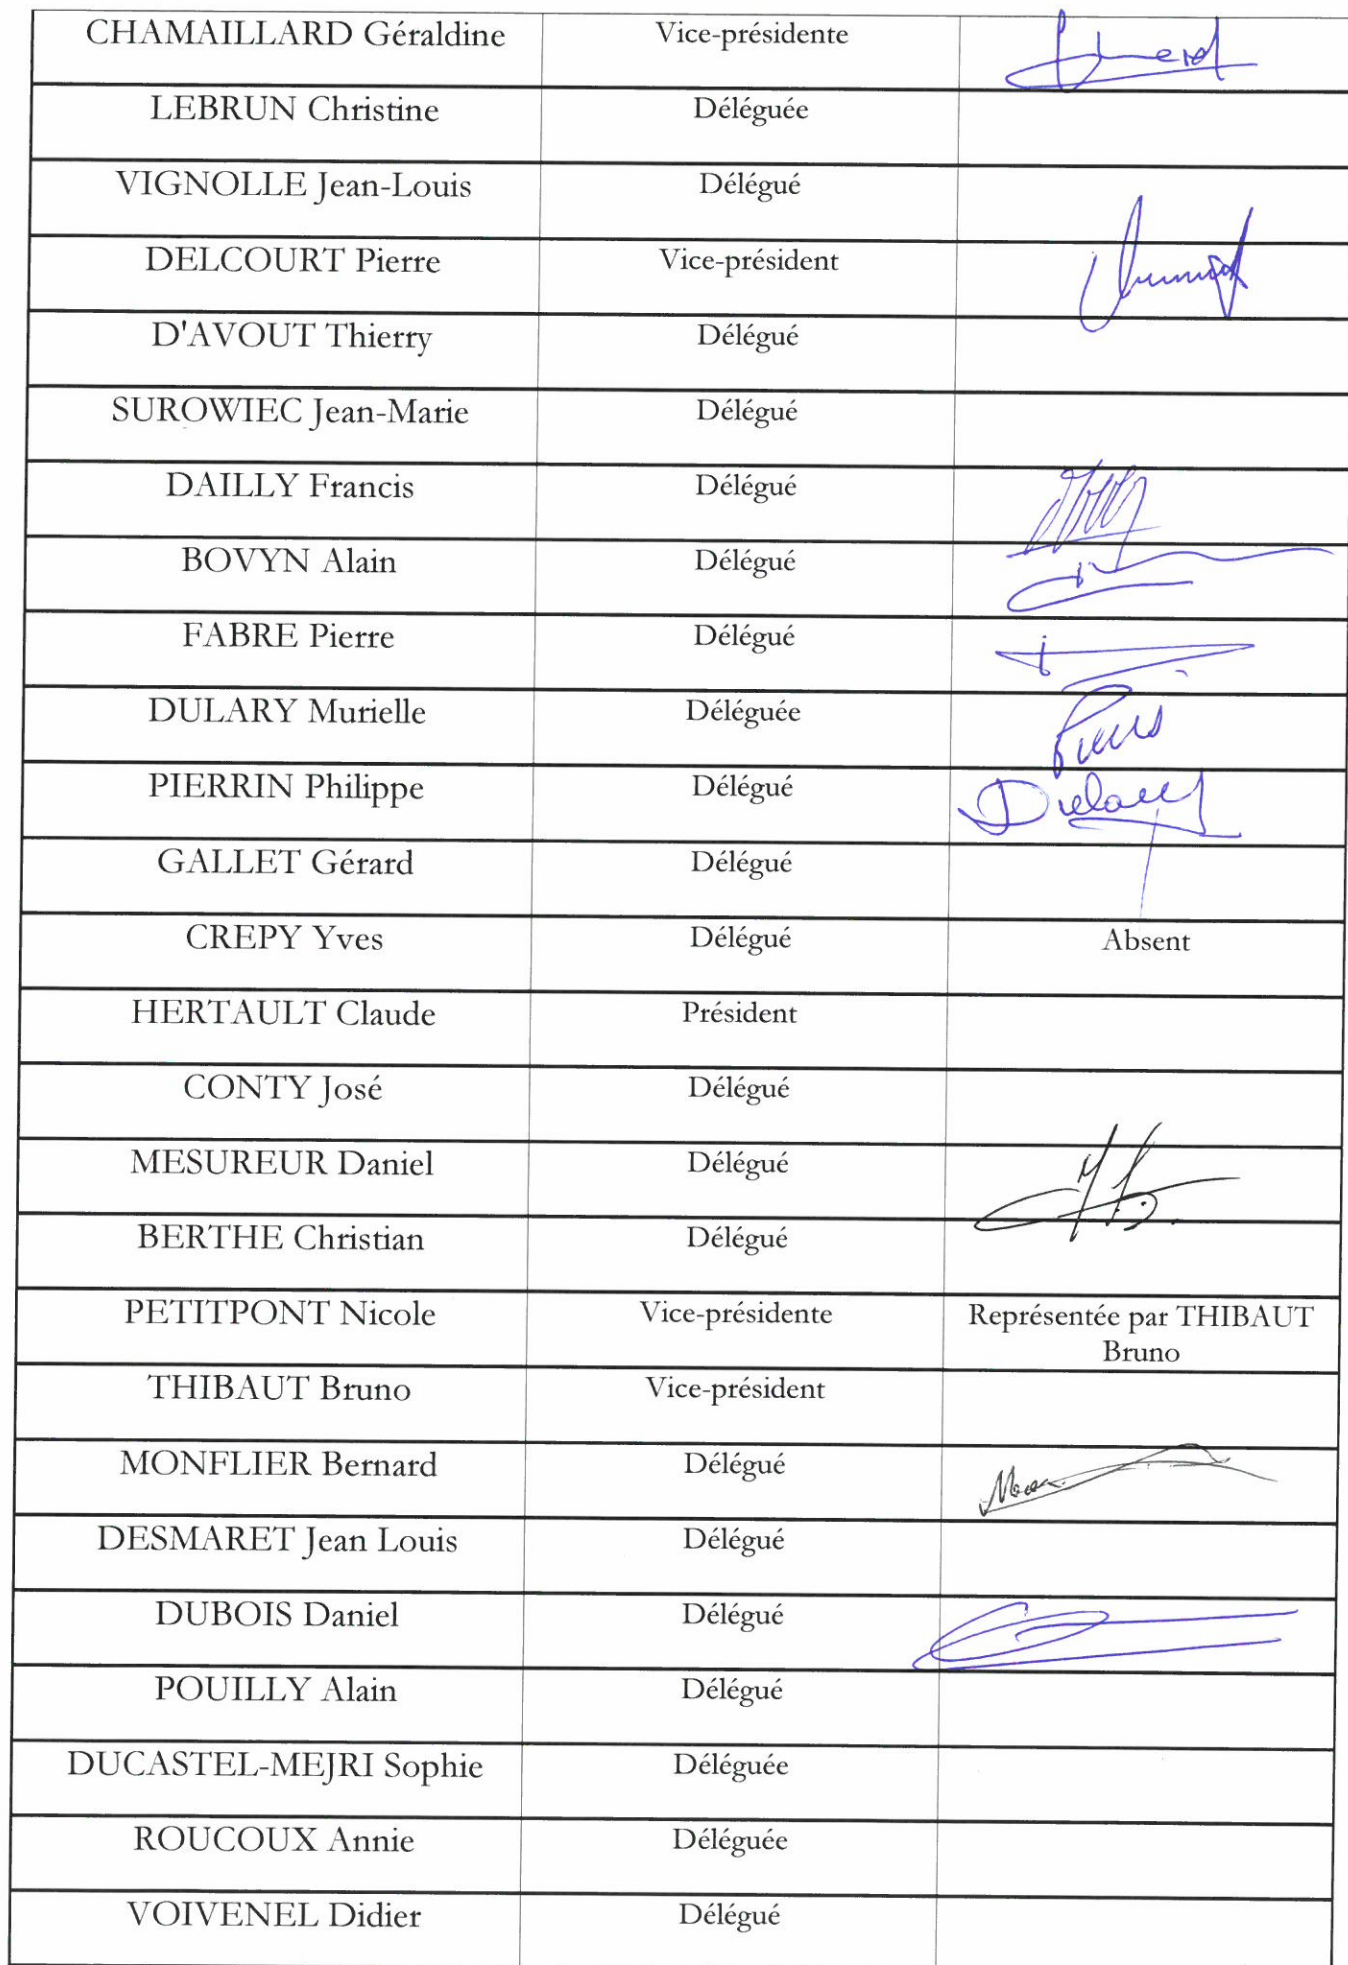 CHAMAILLARD Géraldine Vice-présidente
LEBRUN Christine Déléguée
VIGNOLLE Jean-Louis Délégué
DELCOURT Pierre Vice-président
D'AVOUT Thierry Délégué
SUROWIEC Jean-Marie Délégué
DAILLY Francis Délégué
BOVYN Alain Délégué
FABRE Pierre Délégué
DULARY Murielle Déléguée
PIERRIN Philippe Délégué Dulary
GALLET Gérard Délégué
CREPY Yves Délégué Absent
HERTAULT Claude Président
CONTY José Délégué
MESUREUR Daniel Délégué
BERTHE Christian Délégué
PETITPONT Nicole Vice-présidente Représentée par THIBAUT
Bruno
THIBAUT Bruno Vice-président
MONFLIER Bernard Délégué
DESMARET Jean Louis Délégué
DUBOIS Daniel Délégué
POUILLY Alain Délégué
DUCASTEL-MEJRI Sophie Déléguée
ROUCOUX Annie Déléguée
VOIVENEL Didier Délégué